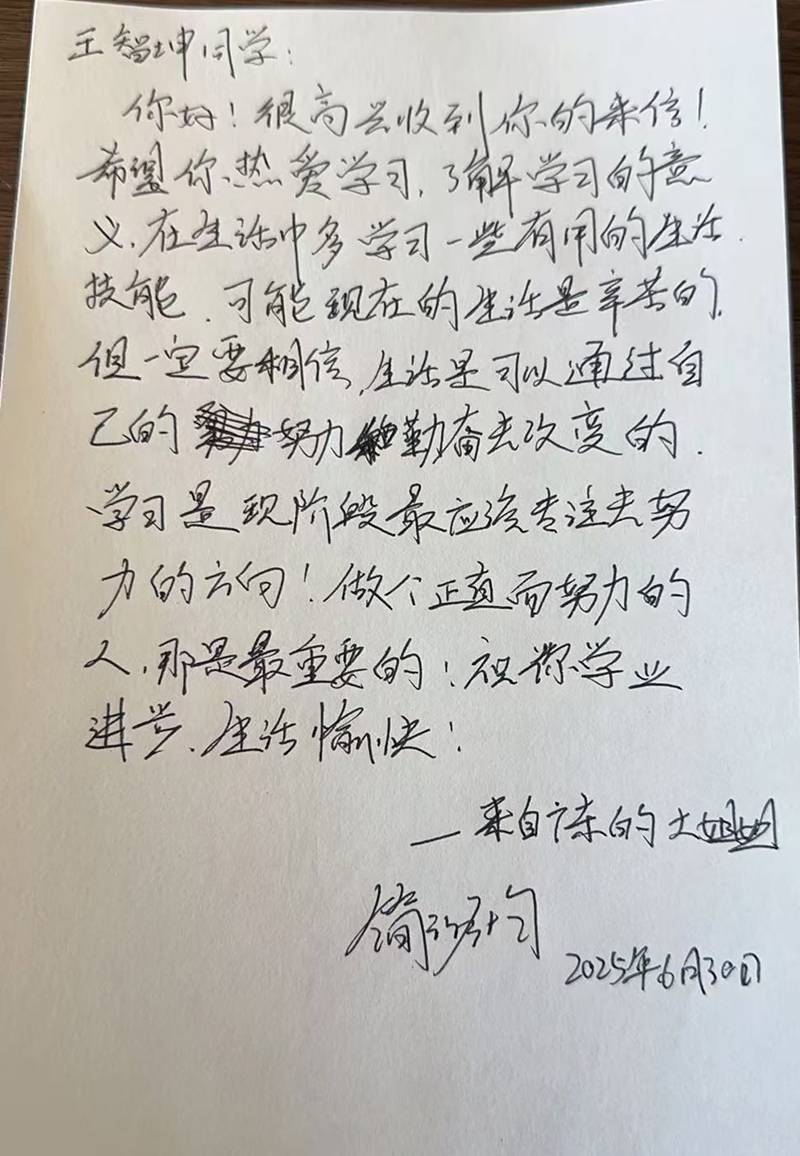 王智坤同学：
你好！很高兴收到你的来信！
希望你热爱学习，了解学习的意
义，在生活中多学习一些有用的生活
技能，可能现在的生活是辛苦的，
但一定要相信，生活是可以通过自
己的努力勤奋去改变的．
学习是现阶段最应该专注去努
力的方向！做个正直而努力的
人，那是最重要的！祝你学业
进步、生活愉快！
—来自广东的大姐姐
2025年6月30日